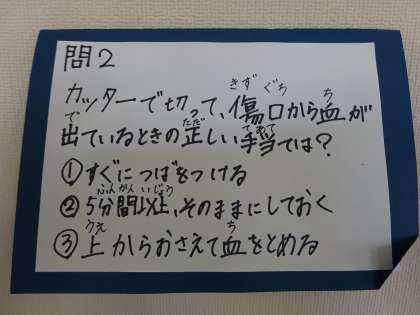 問2
カッターで切って、傷口から血が
出ているときの正しい手当ては?
①すぐにつばをつける
②5分間以上、そのままにしておく
③上からおさえて血をとめる